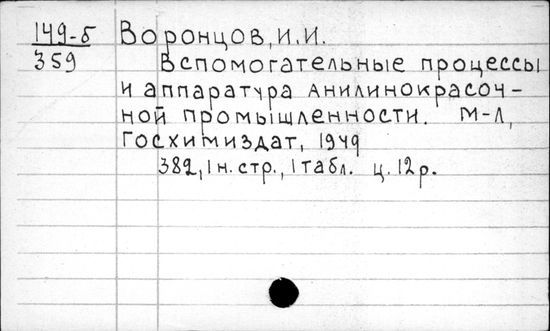 149-б Воронцов, И.И.
359 Вспомогательные процессы
и аппаратура анилинокрасоч-
ной промышленности. М-Л,
Госхимиздат, 1949
382, 1 н. стр., 1 табл. ц. 12 р.